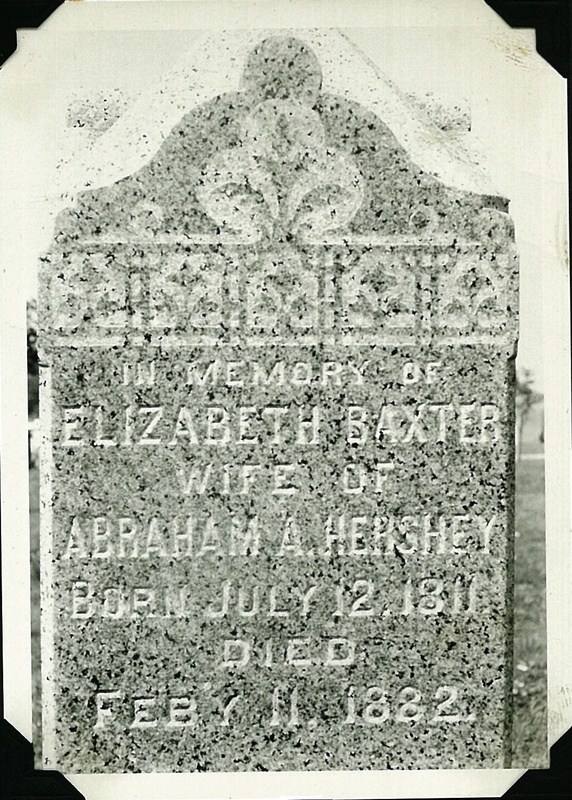 IN MEMORY OF
ELIZABETH BAXTER
WIFE OF
ABRAHAM A. HERSHEY
BORN JULY 12, 1811.
DIED
FEB'Y 11, 1882.